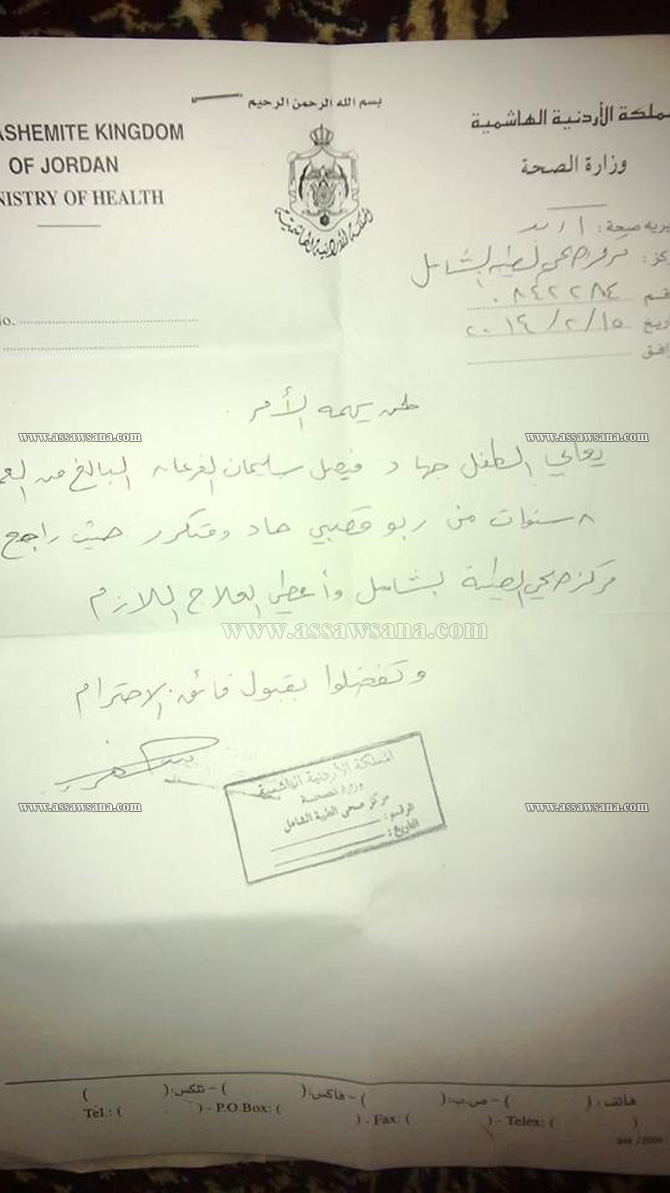 بسم الله الرحمن الرحيم
ASHEMITE KINGDOM
OF JORDAN
NISTRY OF HEALTH
مملكة الأردنية الهاشمية
وزارة الصحة
المملكة الأردنية الهاشمية
يرية صحة: اربد
كز: مركز صحي الطيبة الشامل
قم ٠٨٤٢٢٨٤
اريخ ٢٠١٤/٢/١٥
رافق
No.
لمن يهمه الأمر
www.assawsana.com www.assawsana.com
يعاني الطفل جهاد فيصل سليمان القرعان البالغ من العمر
٨ سنوات من ربو قصبي حاد ومتكرر حيث راجع
مركز صحي الطيبة الشامل وأعطي العلاج اللازم
www.assawsana.com
وتفضلوا بقبول فائق الاحترام
المملكة الأردنية الهاشمية
وزارة الصحة
مركز صحي الطيبة الشامل
الرقم:
التاريخ:
www.assawsana.com www.assawsana.com
هاتف: ( ) – ص.ب: ( ) – فاكس: ( ) – تلكس: ( )
Tel.: ( ) - P.O.Box: ( ) - Fax: ( ) - Telex: ( )